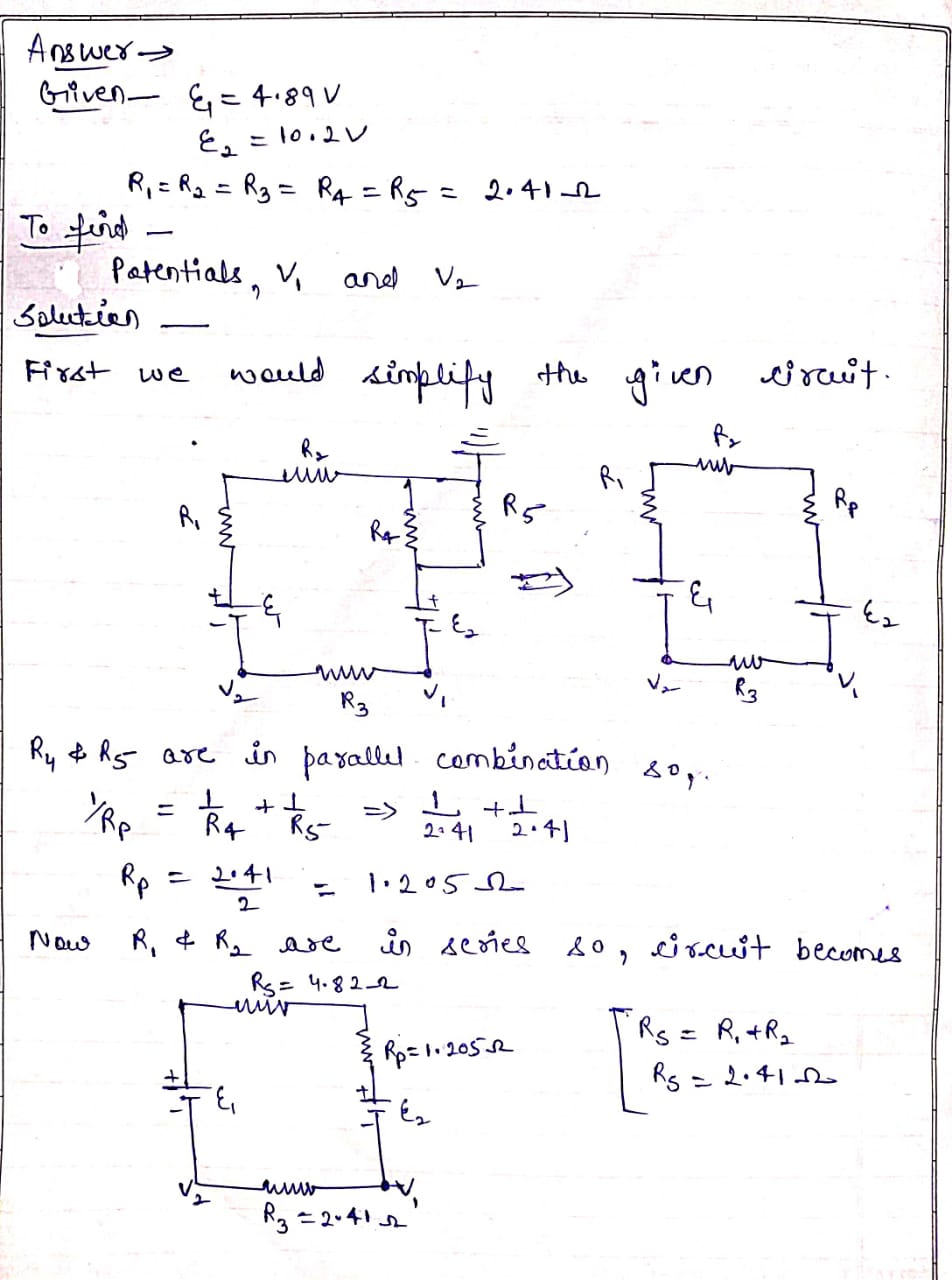 Answer →
Given — ℰ₁ = 4.89 V
ℰ₂ = 10.2 V
R₁ = R₂ = R₃ = R₄ = R₅ = 2.41 Ω
To find —
Potentials, V₁ and V₂
Solution —
First we would simplify the given circuit.
R₂
R₁
R₄
R₅
+
-
ℰ₁
+
-
ℰ₂
V₂
R₃
V₁
⇒
R₂
R₁
Rp
ℰ₁
ℰ₂
V₂
R₃
V₁
R₄ & R₅ are in parallel combination so,
1/Rp = 1/R₄ + 1/R₅ => 1/2.41 + 1/2.41
Rp = 2.41/2 = 1.205 Ω
Now R₁ & R₂ are in series so, circuit becomes
Rs = 4.82 Ω
Rp = 1.205 Ω
+
-
ℰ₁
+
-
ℰ₂
V₂
V₁
R₃ = 2.41 Ω
Rs = R₁ + R₂
Rs = 2.41 Ω